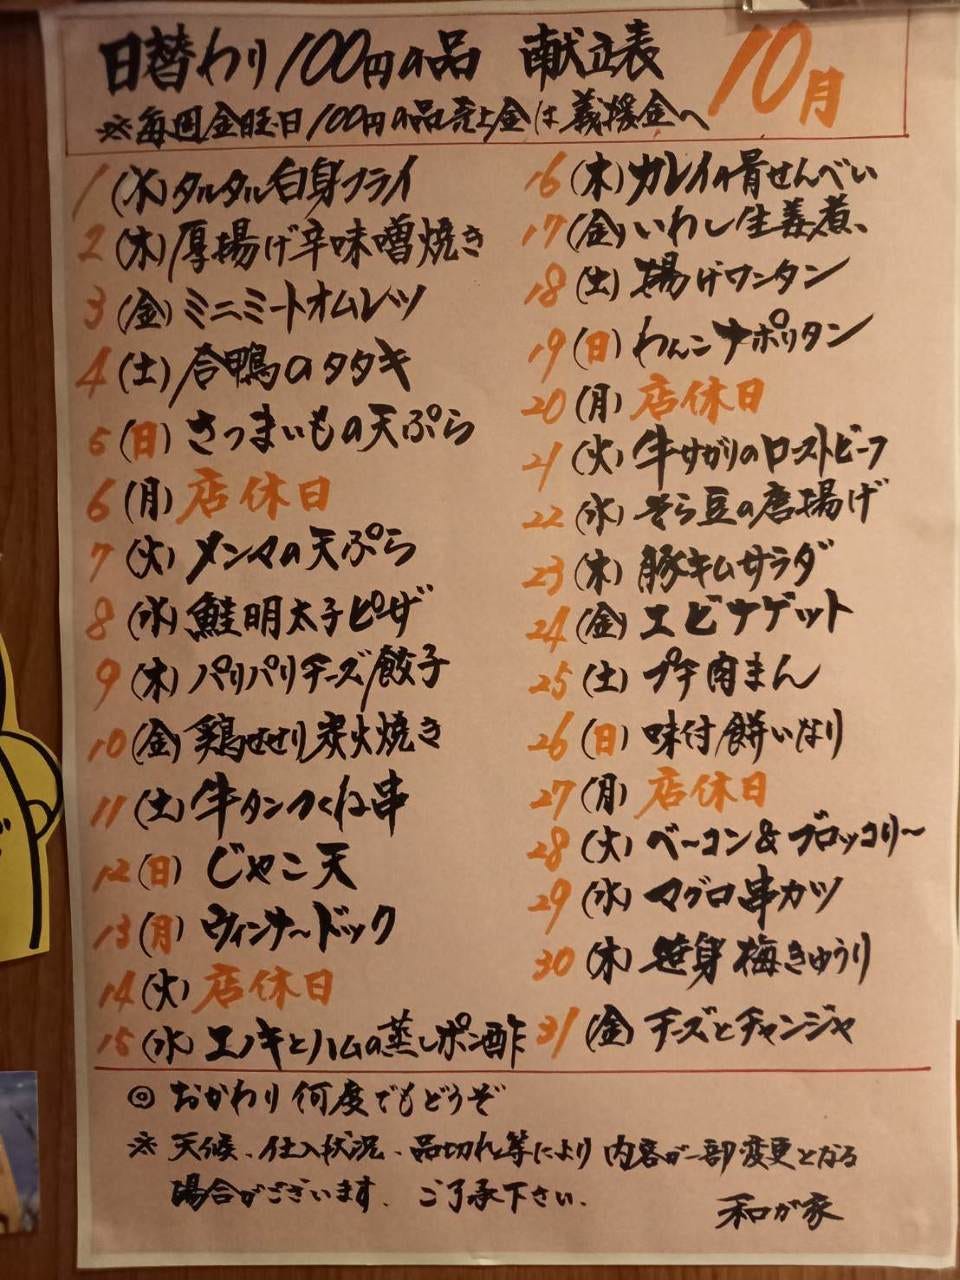 日替わり100円の品 献立表 10月
※毎週金曜日100円の品売上金は義援金へ
1(水)タルタル白身フライ
2(木)厚揚げ辛味噌焼き
3(金)ミニミートオムレツ
4(土)合鴨のタタキ
5(日)さつまいもの天ぷら
6(月)店休日
7(火)メンマの天ぷら
8(水)鮭明太子ピザ
9(木)パリパリチーズ餃子
10(金)鶏せせり炭火焼き
11(土)牛タンつくね串
12(日)じゃこ天
13(月)ウィンナ〜ドック
14(火)店休日
15(水)エノキとハムの蒸しポン酢
16(木)カレイの骨せんべい
17(金)いわし生姜煮、
18(土)揚げワンタン
19(日)わんこナポリタン
20(月)店休日
21(火)牛サガリのローストビーフ
22(水)そら豆の唐揚げ
23(木)豚キムサラダ
24(金)エビナゲット
25(土)プチ肉まん
26(日)味付餅いなり
27(月)店休日
28(火)ベーコン&ブロッコリ〜
29(水)マグロ串カツ
30(木)笹身梅きゅうり
31(金)チーズとチャンジャ
◎おかわり何度でもどうぞ
※天候、仕入状況、品切れ等により内容が一部変更となる
場合がございます、ご了承下さい、
和が家